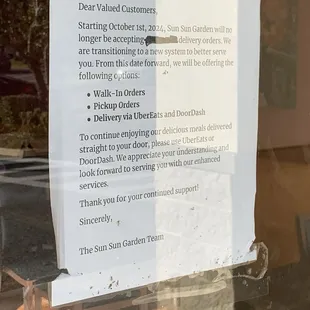 Dear Valued Customers,
Starting October 1st, 2024, Sun Sun Garden will no
longer be accepting delivery orders. We
are transitioning to a new system to better serve
you. From this date forward, we will be offering the
following options:
• Walk-In Orders
• Pickup Orders
• Delivery via UberEats and DoorDash
To continue enjoying our delicious meals delivered
straight to your door, please use UberEats or
DoorDash. We appreciate your understanding and
look forward to serving you with our enhanced
services.
Thank you for your continued support!
Sincerely,
The Sun Sun Garden Team